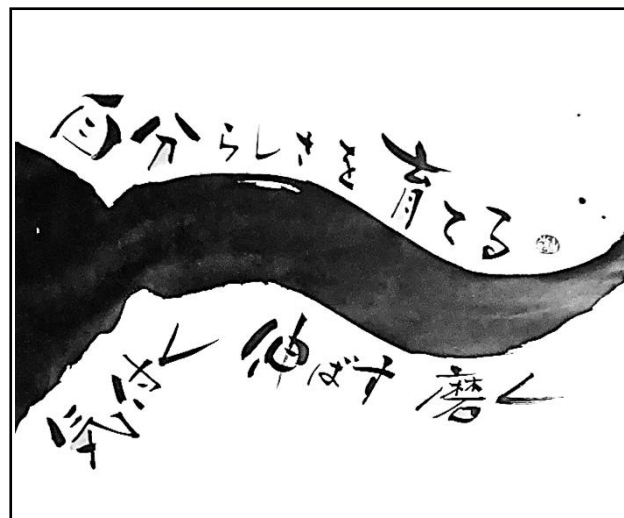 自分らしさを育てる
気付く 伸ばす 磨く